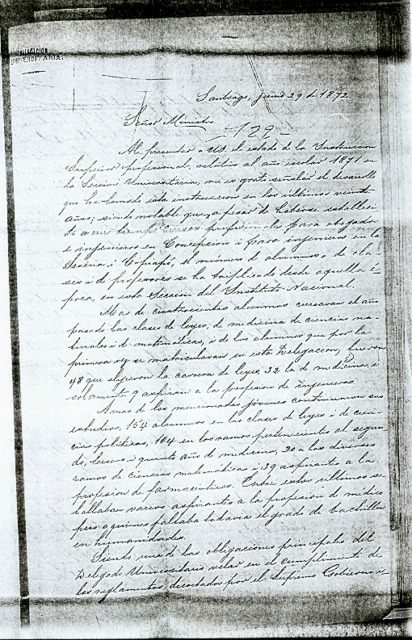 Santiago, junio 29 de 1872
Señor Ministro
129
Al presentar a US. el estado de la Instruccion
Superior i profesional, relativo al año escolar 1871 en
la Seccion Universitaria, me es grato señalar el desarrollo
que ha tomado esta instruccion en los últimos veinte
años; siendo notable que, a pesar de haberse estableci-
do en ese tiempo cursos para abogados
e injenieros en Concepcion i para injenieros en la
Serena i Copiapó, el número de alumnos i de cla-
ses i de profesores se ha triplicado desde aquella é-
poca, en esta Seccion del Instituto Nacional.
Mas de cuatrocientos alumnos cursaron el año
pasado las clases de leyes, de medicina de ciencias na-
turales i de matemáticas, i de los alumnos que por la
primera vez se matricularon en esta Delegacion,
48 que siguieron la carrera de leyes, 32 la de medicina, i
solamente 9 aspiran a la profesion de injenieros.
A mas de los mencionados jóvenes continuaron sus
estudios, 154 alumnos en las clases de leyes i de cien-
cias políticas, 104 en los ramos pertenecientes al segun-
do, tercero i quinto año de medicina, 20 a los diversos
ramos de ciencias matemáticas i 39 aspirantes a la
profesion de farmacéuticos. Entre estos últimos se
hallaban varios aspirantes a la profesion de médico
pero a quienes faltaba todavia el grado de bachiller
en humanidades.
Siendo una de las obligaciones principales del
Delegado Universitario velar en el cumplimiento de
los reglamentos decretados por el Supremo Gobierno